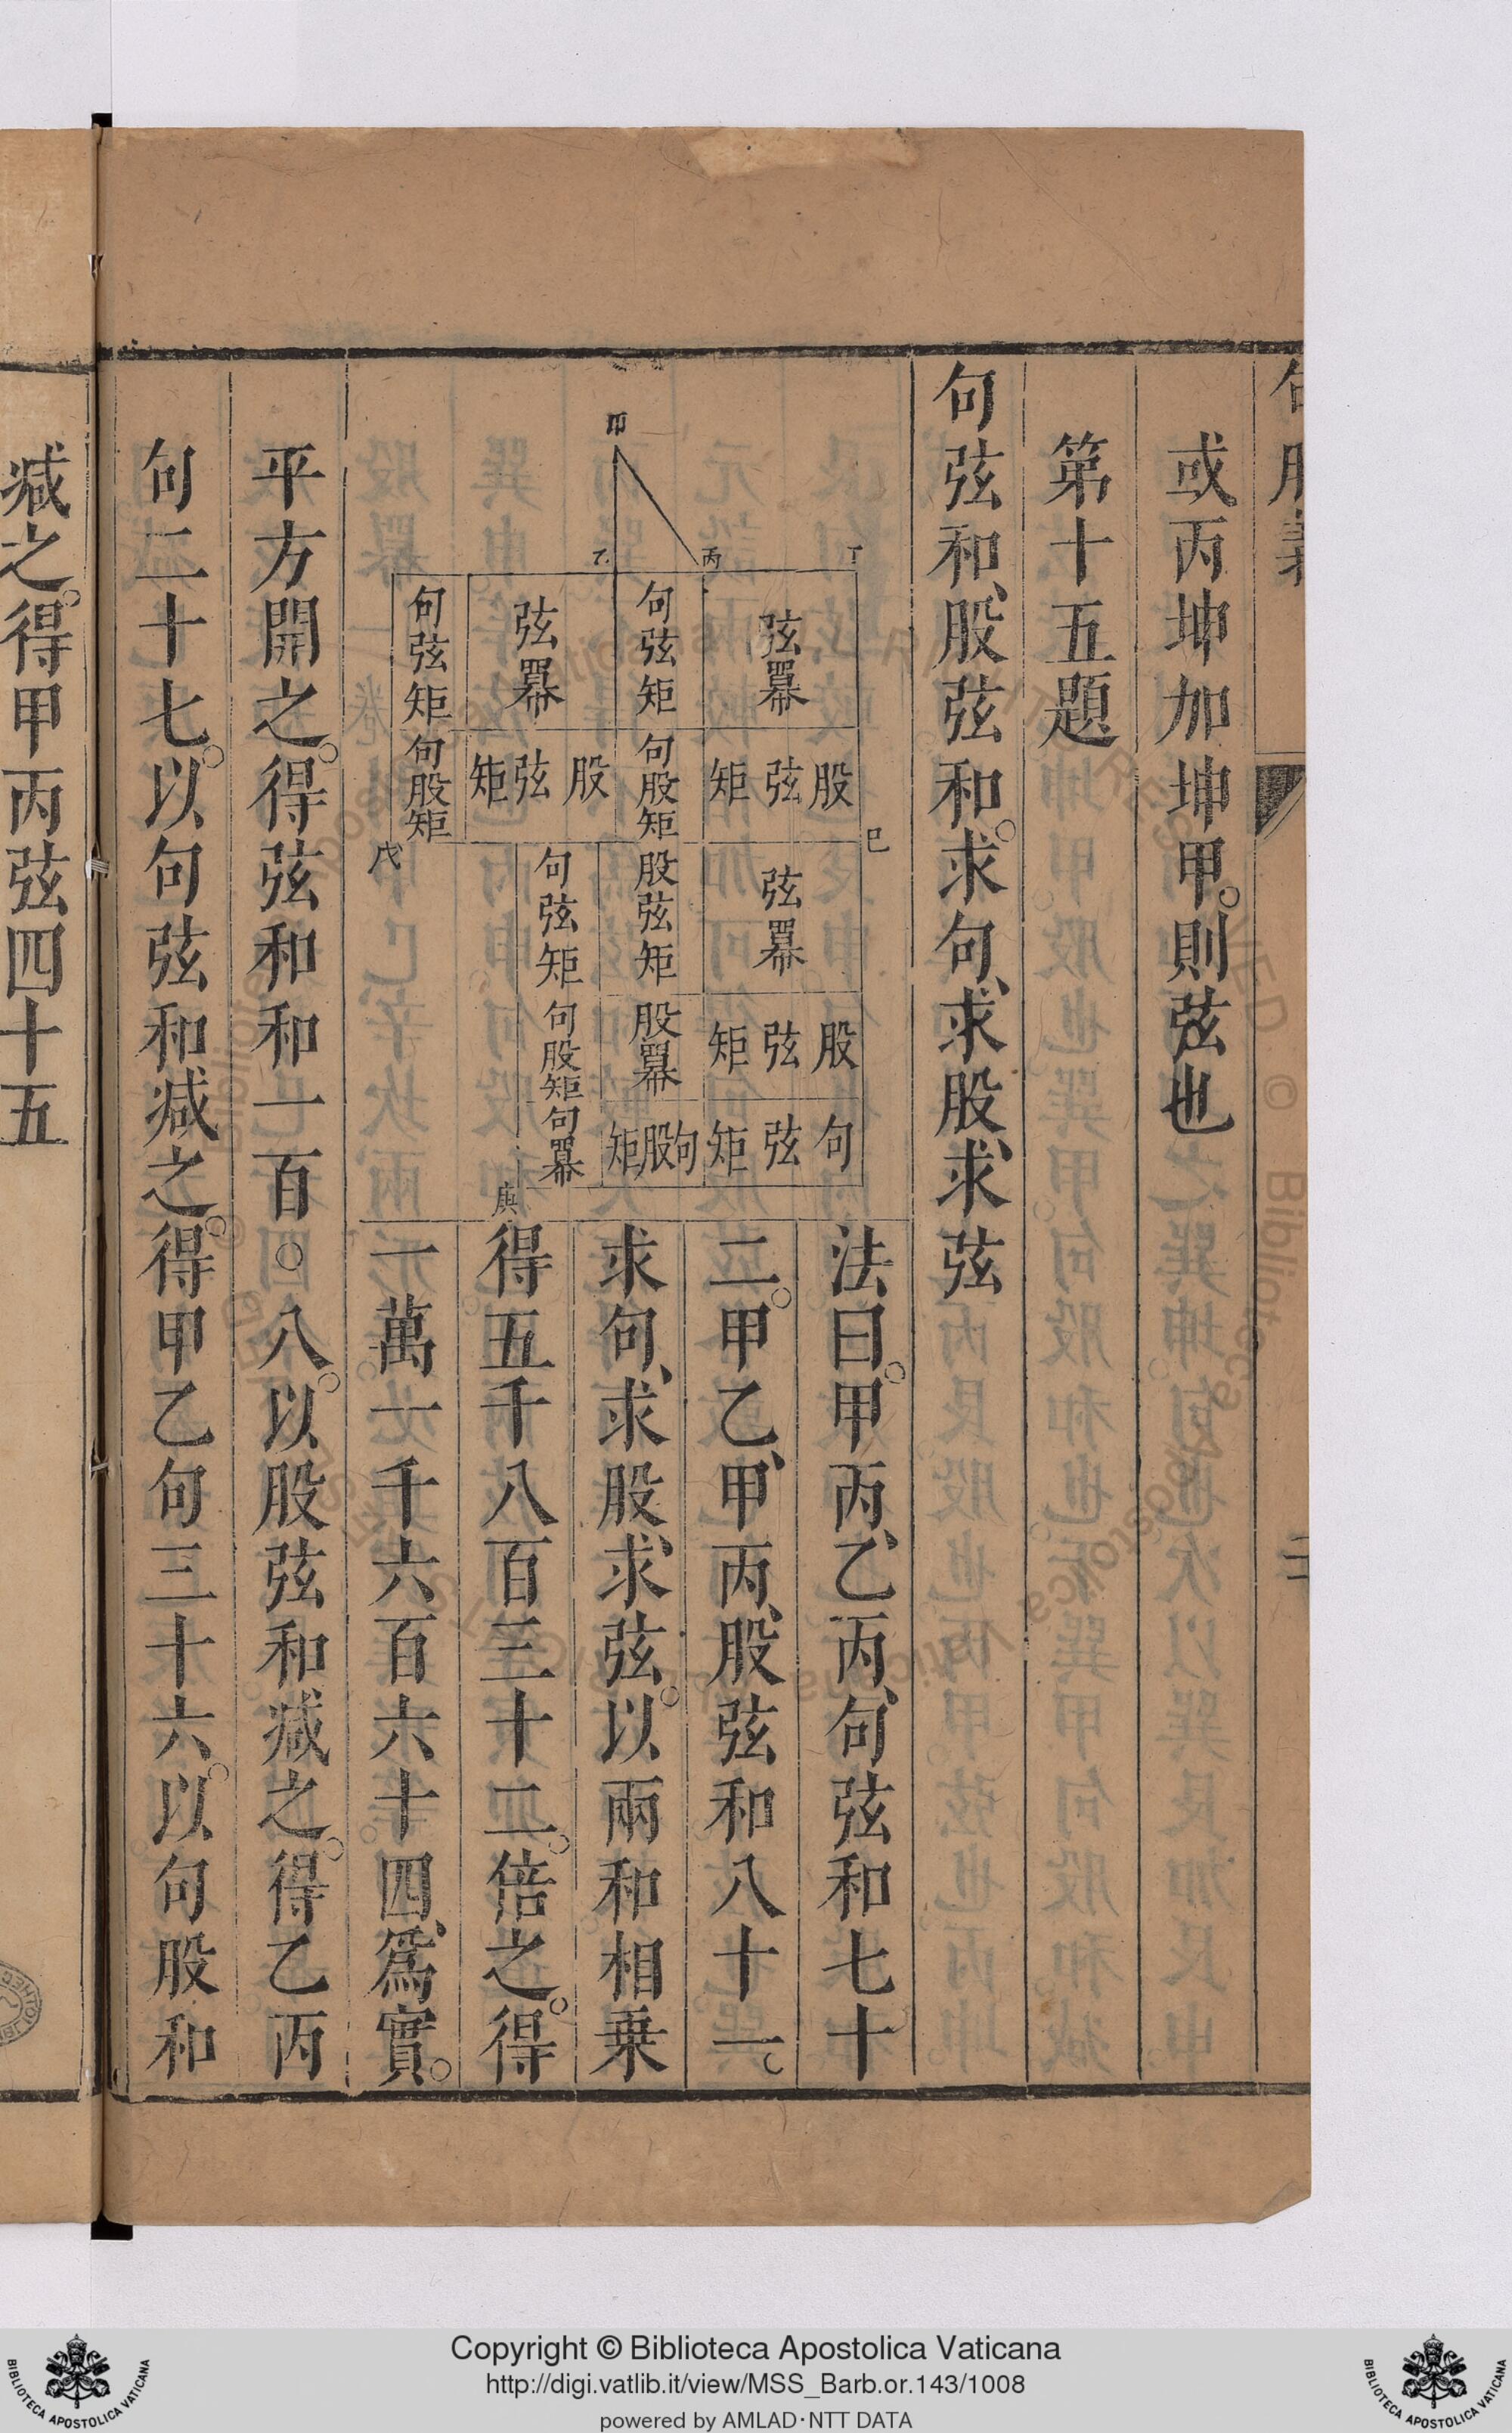 或丙坤加坤甲。則弦也
第十五題
句弦和、股弦和。求句、求股、求弦
法曰。甲丙、乙丙、句弦和七十
二。甲乙、甲丙、股弦和八十一。
求句、求股、求弦。以兩和相乗
得五千八百三十二。倍之。得
一萬一千六百六十四、爲實。
甲
丁
丙
乙
弦羃
句弦矩
弦羃
句弦矩
股弦矩
句股矩
股弦矩
句股矩
巳
戊
弦羃
股弦矩
句弦矩
股弦矩
股羃
句股矩
句弦矩
句股矩
句羃
庚
平方開之。得弦和和一百〇八。以股弦和減之。得乙丙
句二十七。以句弦和減之。得甲乙句三十六。以句股和
減之。得甲丙弦四十五
Copyright © Biblioteca Apostolica Vaticana
http://digi.vatlib.it/view/MSS_Barb.or.143/1008
powered by AMLAD·NTT DATA
BIBLIOTECA APOSTOLICA VATICANA
BIBLIOTECA APOSTOLICA VATICANA